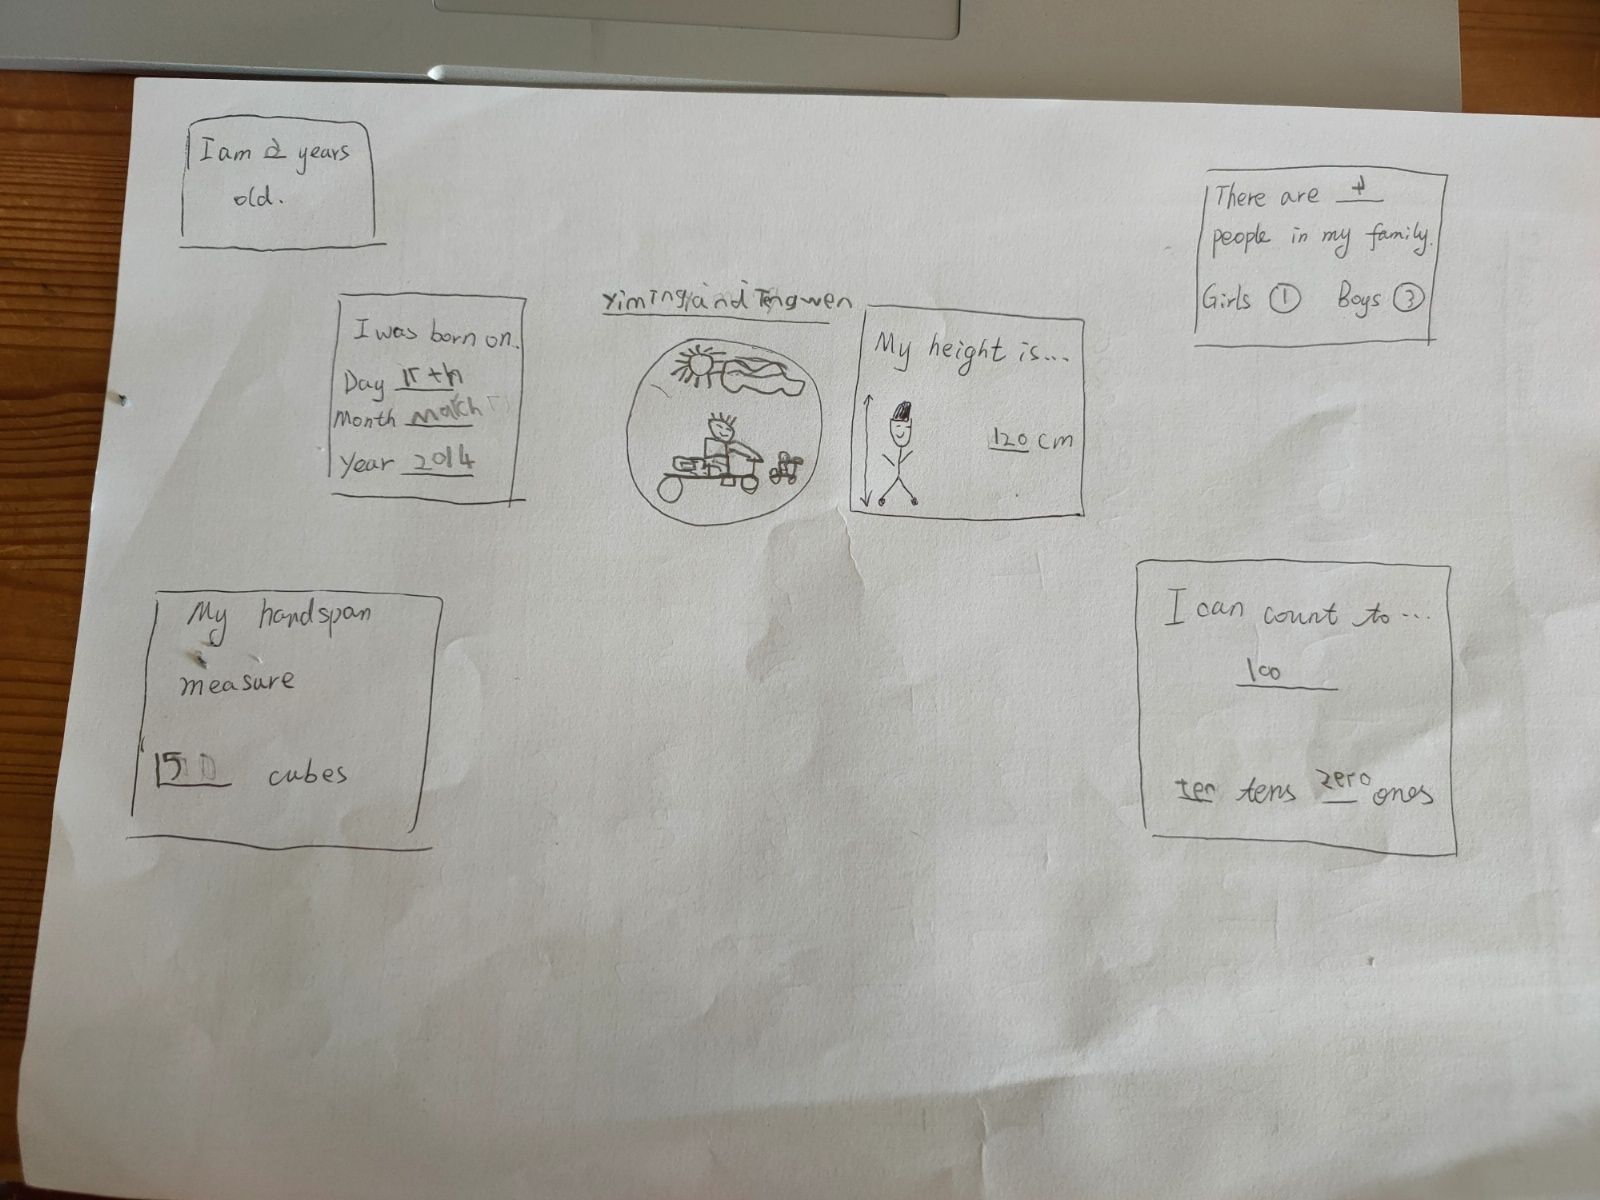 I am years
old.
There are 4
people in my family.
Girls 1 Boys 3
I was born on.
Day
Month March
Year 2014
Yiming and Tengwen
My height is...
120 cm
My handspan
measure
15 cubes
I can count to...
100
ten tens zero ones